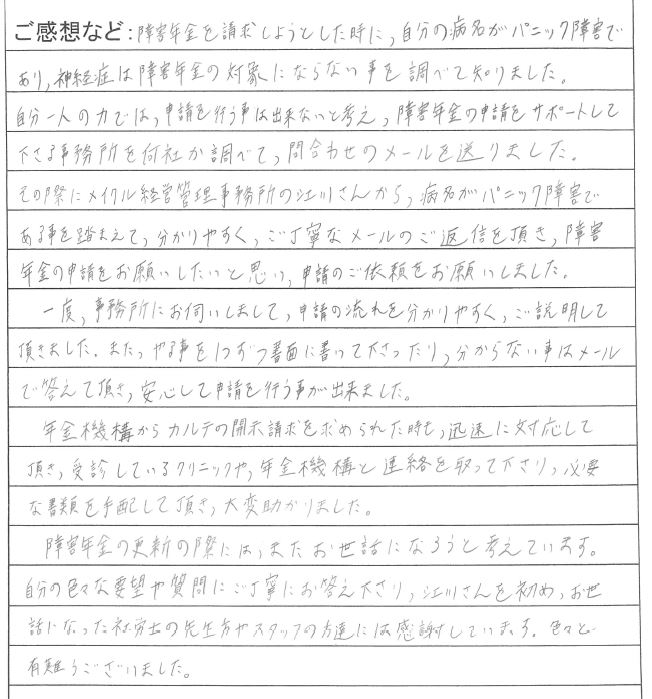 ご感想など:障害年金を請求しようとした時に、自分の病名がパニック障害で
あり、神経症は障害年金の対象にならない事を調べて知りました。
自分一人の力では、申請を行う事は出来ないと考え、障害年金の申請をサポートして
下さる事務所を何社か調べて、問合わせのメールを送りました。
その際にメイクル経営管理事務所の江川さんから、病名がパニック障害で
ある事を踏まえて、分かりやすく、ご丁寧なメールのご返信を頂き、障害
年金の申請をお願いしたいと思い、申請のご依頼をお願いしました。
一度、事務所にお伺いしまして、申請の流れを分かりやすく、ご説明して
頂きました。また、やる事を1つずつ書面に書いて下さったり、分からない事はメール
で答えて頂き、安心して申請を行う事が出来ました。
年金機構からカルテの開示請求を求められた時も、迅速に対応して
頂き、受診しているクリニックや、年金機構と連絡を取って下さり、必要
な書類を手配して頂き、大変助かりました。
障害年金の更新の際には、またお世話になろうと考えています。
自分の色々な要望や質問にご丁寧にお答え下さり、江川さんを初め、お世
話になった社労士の先生方やスタッフの方達には感謝しています。色々と
有難うございました。